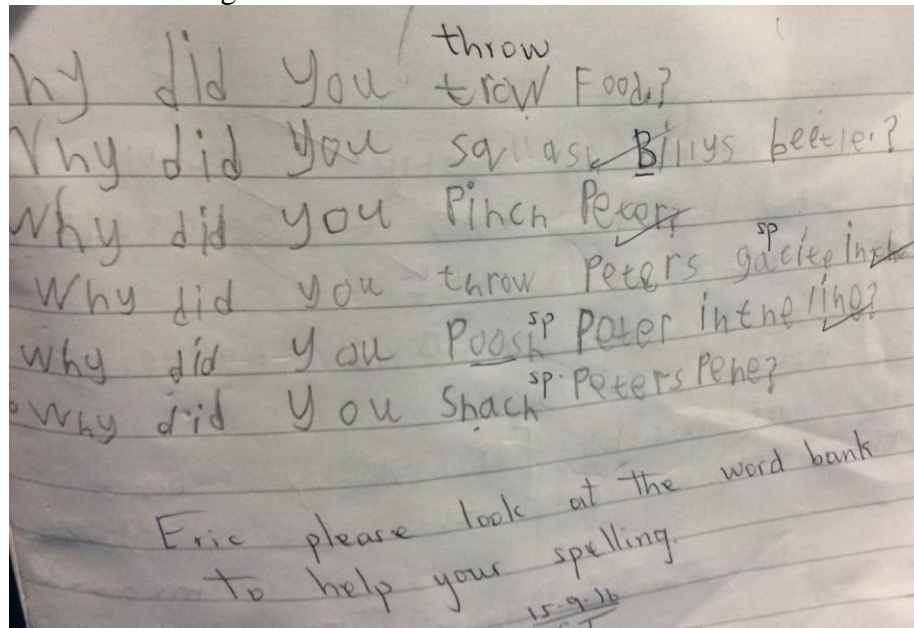 throw
hy did you trow Food.?
Why did you squash Billys beetle.?
Why did you Pinch Peter?
sp
Why did you throw Peters gacite in
sp
why did you Poosh Peter in the line?
sp.
Why did you Shach Peters Pene?
Eric please look at the word bank
to help your spelling.
15-9-16